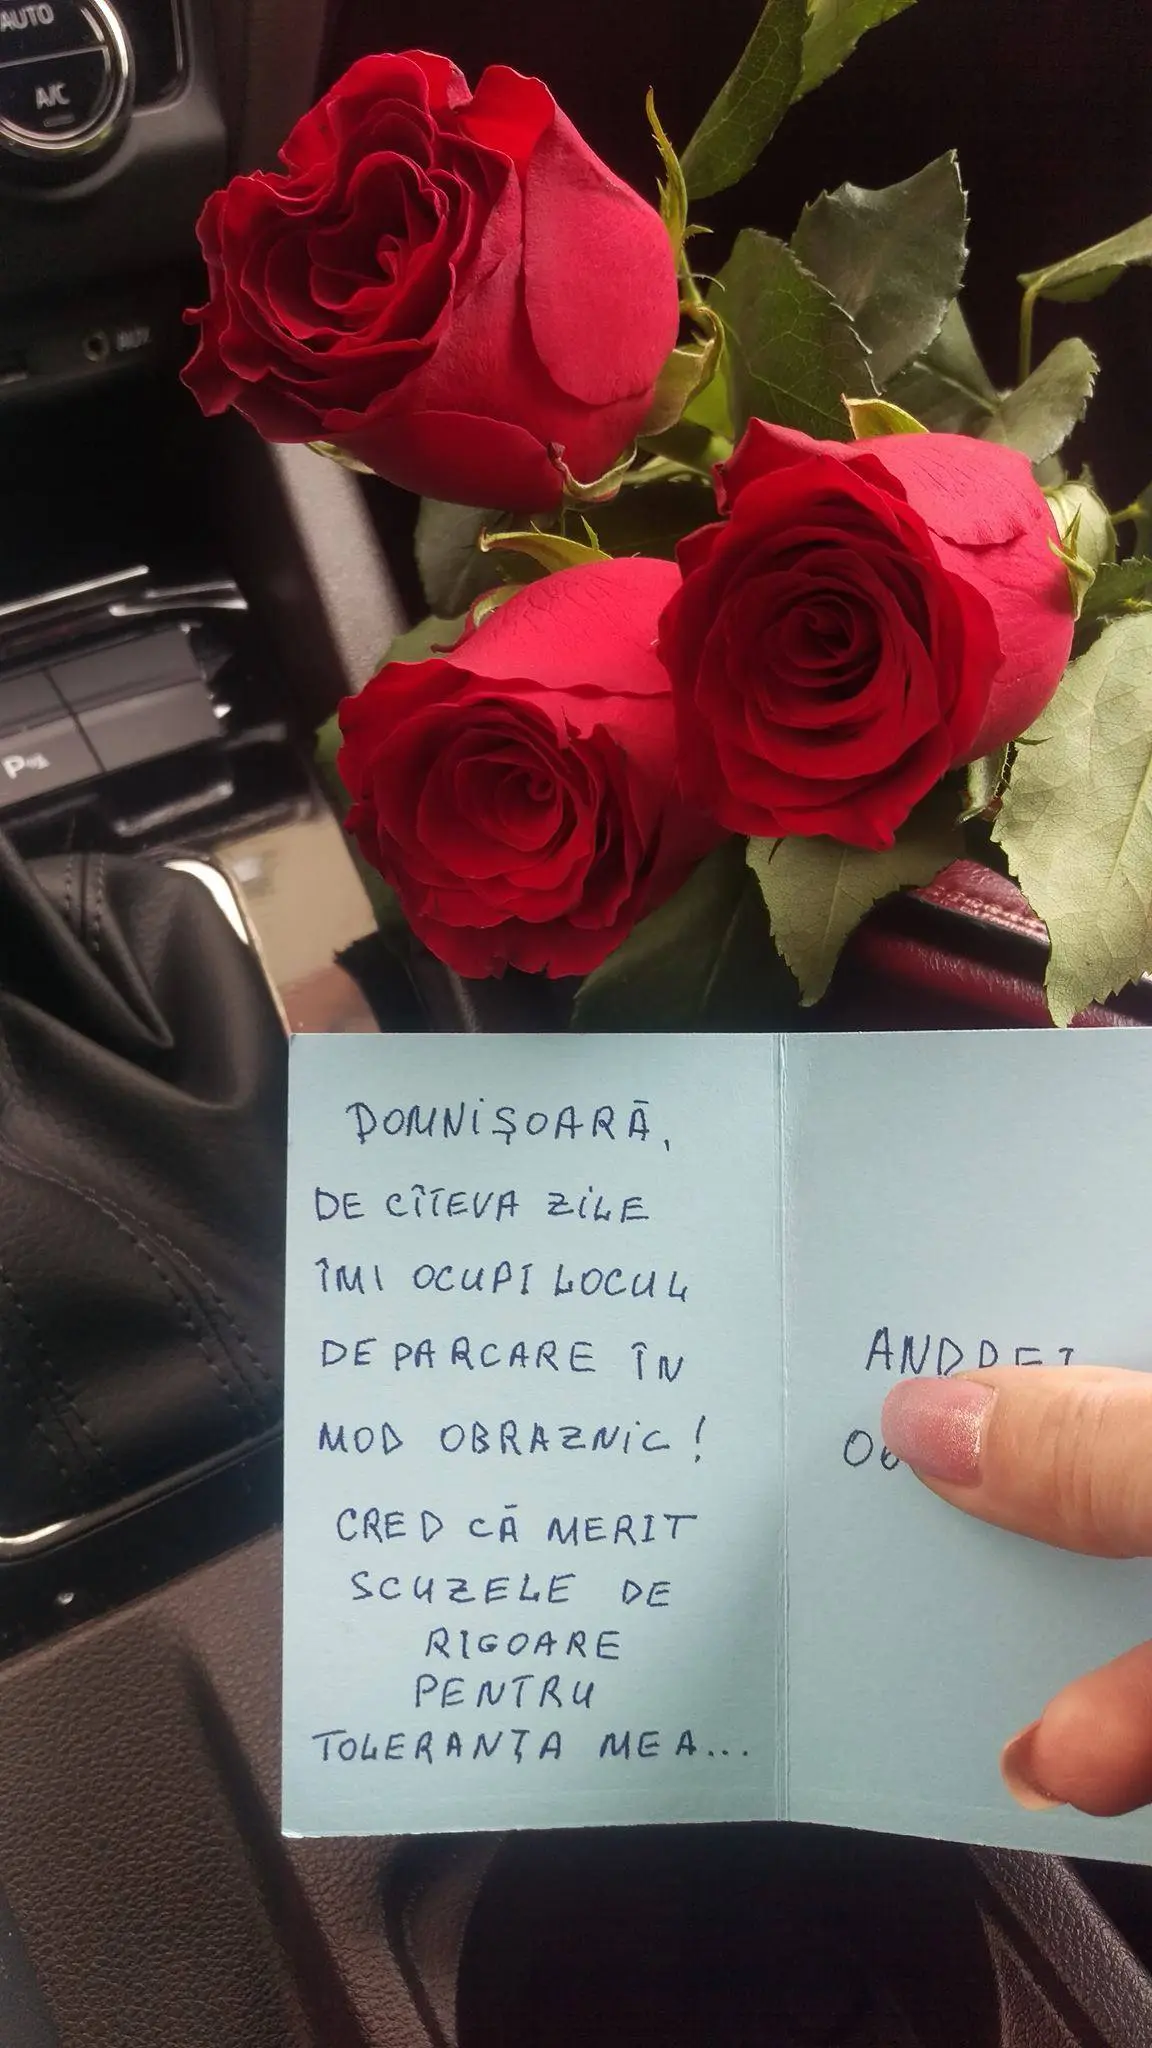 AUTO
A/C
AUX
DOMNIȘOARĂ,
DE CÎTEVA ZILE
ÎMI OCUPI LOCUL
DE PARCARE ÎN
MOD OBRAZNIC!
CRED CĂ MERIT
SCUZELE DE
RIGOARE
PENTRU
TOLERANȚA MEA...
ANDREI